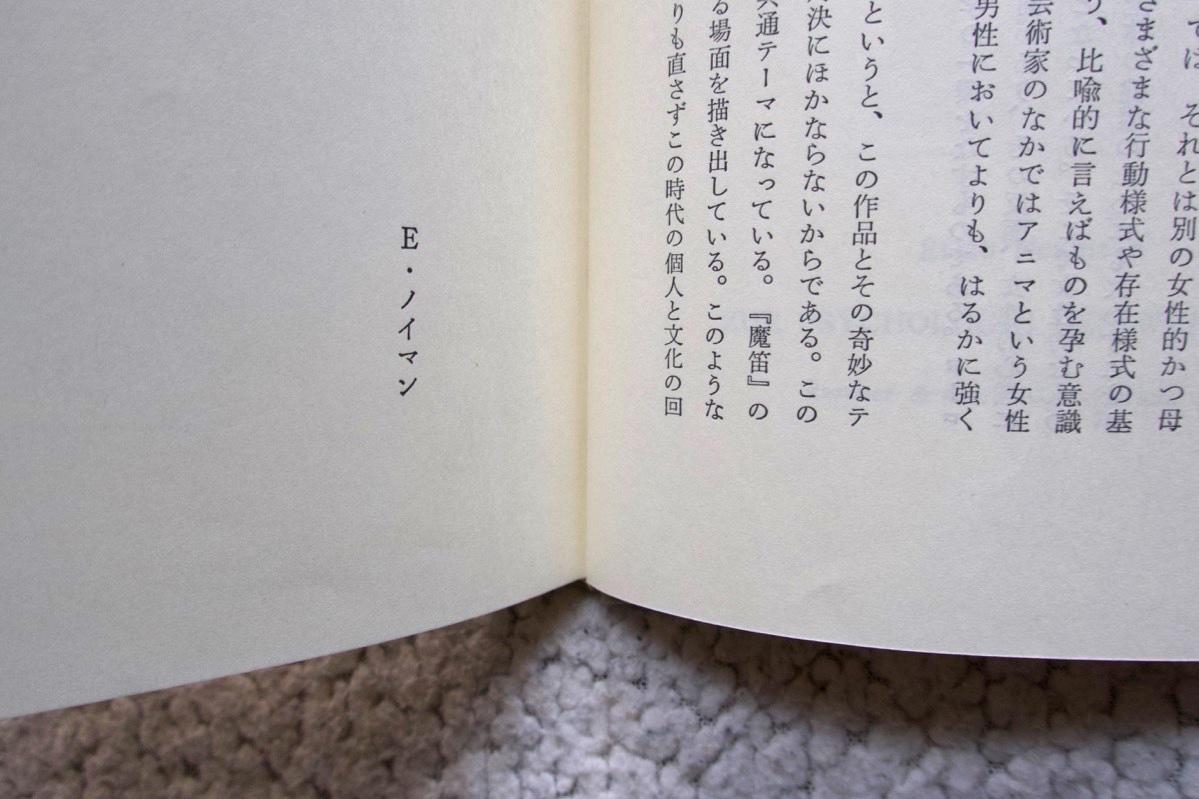 ては、それとは別の女性的かつ母
さまざまな行動様式や存在様式の基
う、比喩的に言えばものを孕む意識
芸術家のなかではアニマという女性
男性においてよりも、はるかに強く
というと、この作品とその奇妙なテ
対決にほかならないからである。この
共通テーマになっている。『魔笛』の
る場面を描き出している。このような
りも直さずこの時代の個人と文化の回
E・ノイマン